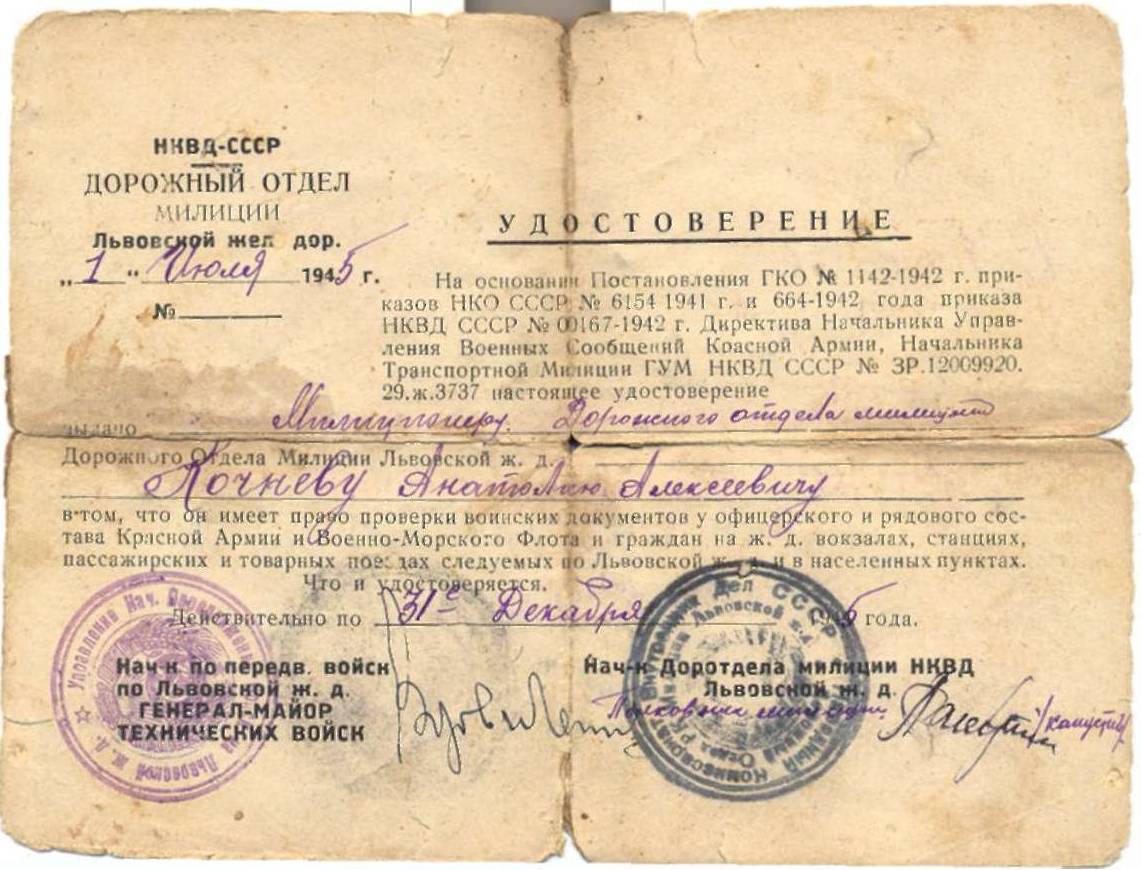 НКВД-СССР
ДОРОЖНЫЙ ОТДЕЛ
МИЛИЦИИ
Львовской жел дор.
„1“ Июля 1945 г.
№
УДОСТОВЕРЕНИЕ
На основании Постановления ГКО № 1142-1942 г. при-
казов НКО СССР № 6154 1941 г. и 664-1942 года приказа
НКВД СССР № 00167-1942 г. Директива Начальника Управ-
ления Военных Сообщений Красной Армии, Начальника
Транспортной Милиции ГУМ НКВД СССР № ЗР.12009920.
29.ж.3737 настоящее удостоверение
выдано Милиционеру. Дорожного отдела милиции
Дорожного Отдела Милиции Львовской ж. д.
Кочневу Анатолию Алексеевичу
в том, что он имеет право проверки воинских документов у офицерского и рядового сос-
тава Красной Армии и Военно-Морского Флота и граждан на ж. д. вокзалах, станциях,
пассажирских и товарных поездах следуемых по Львовской ж. д. и в населенных пунктах.
Что и удостоверяется.
Действительно по 31е Декабря 1945 года.
Нач-к по передв. войск
по Львовской ж. д.
ГЕНЕРАЛ-МАЙОР
ТЕХНИЧЕСКИХ ВОЙСК
Нач-к Доротдела милиции НКВД
Львовской ж. д.
Полковник милиции
Управление Нач.
Львовской ж. д.
Внутренних Дел СССР
Львовской ж.д.